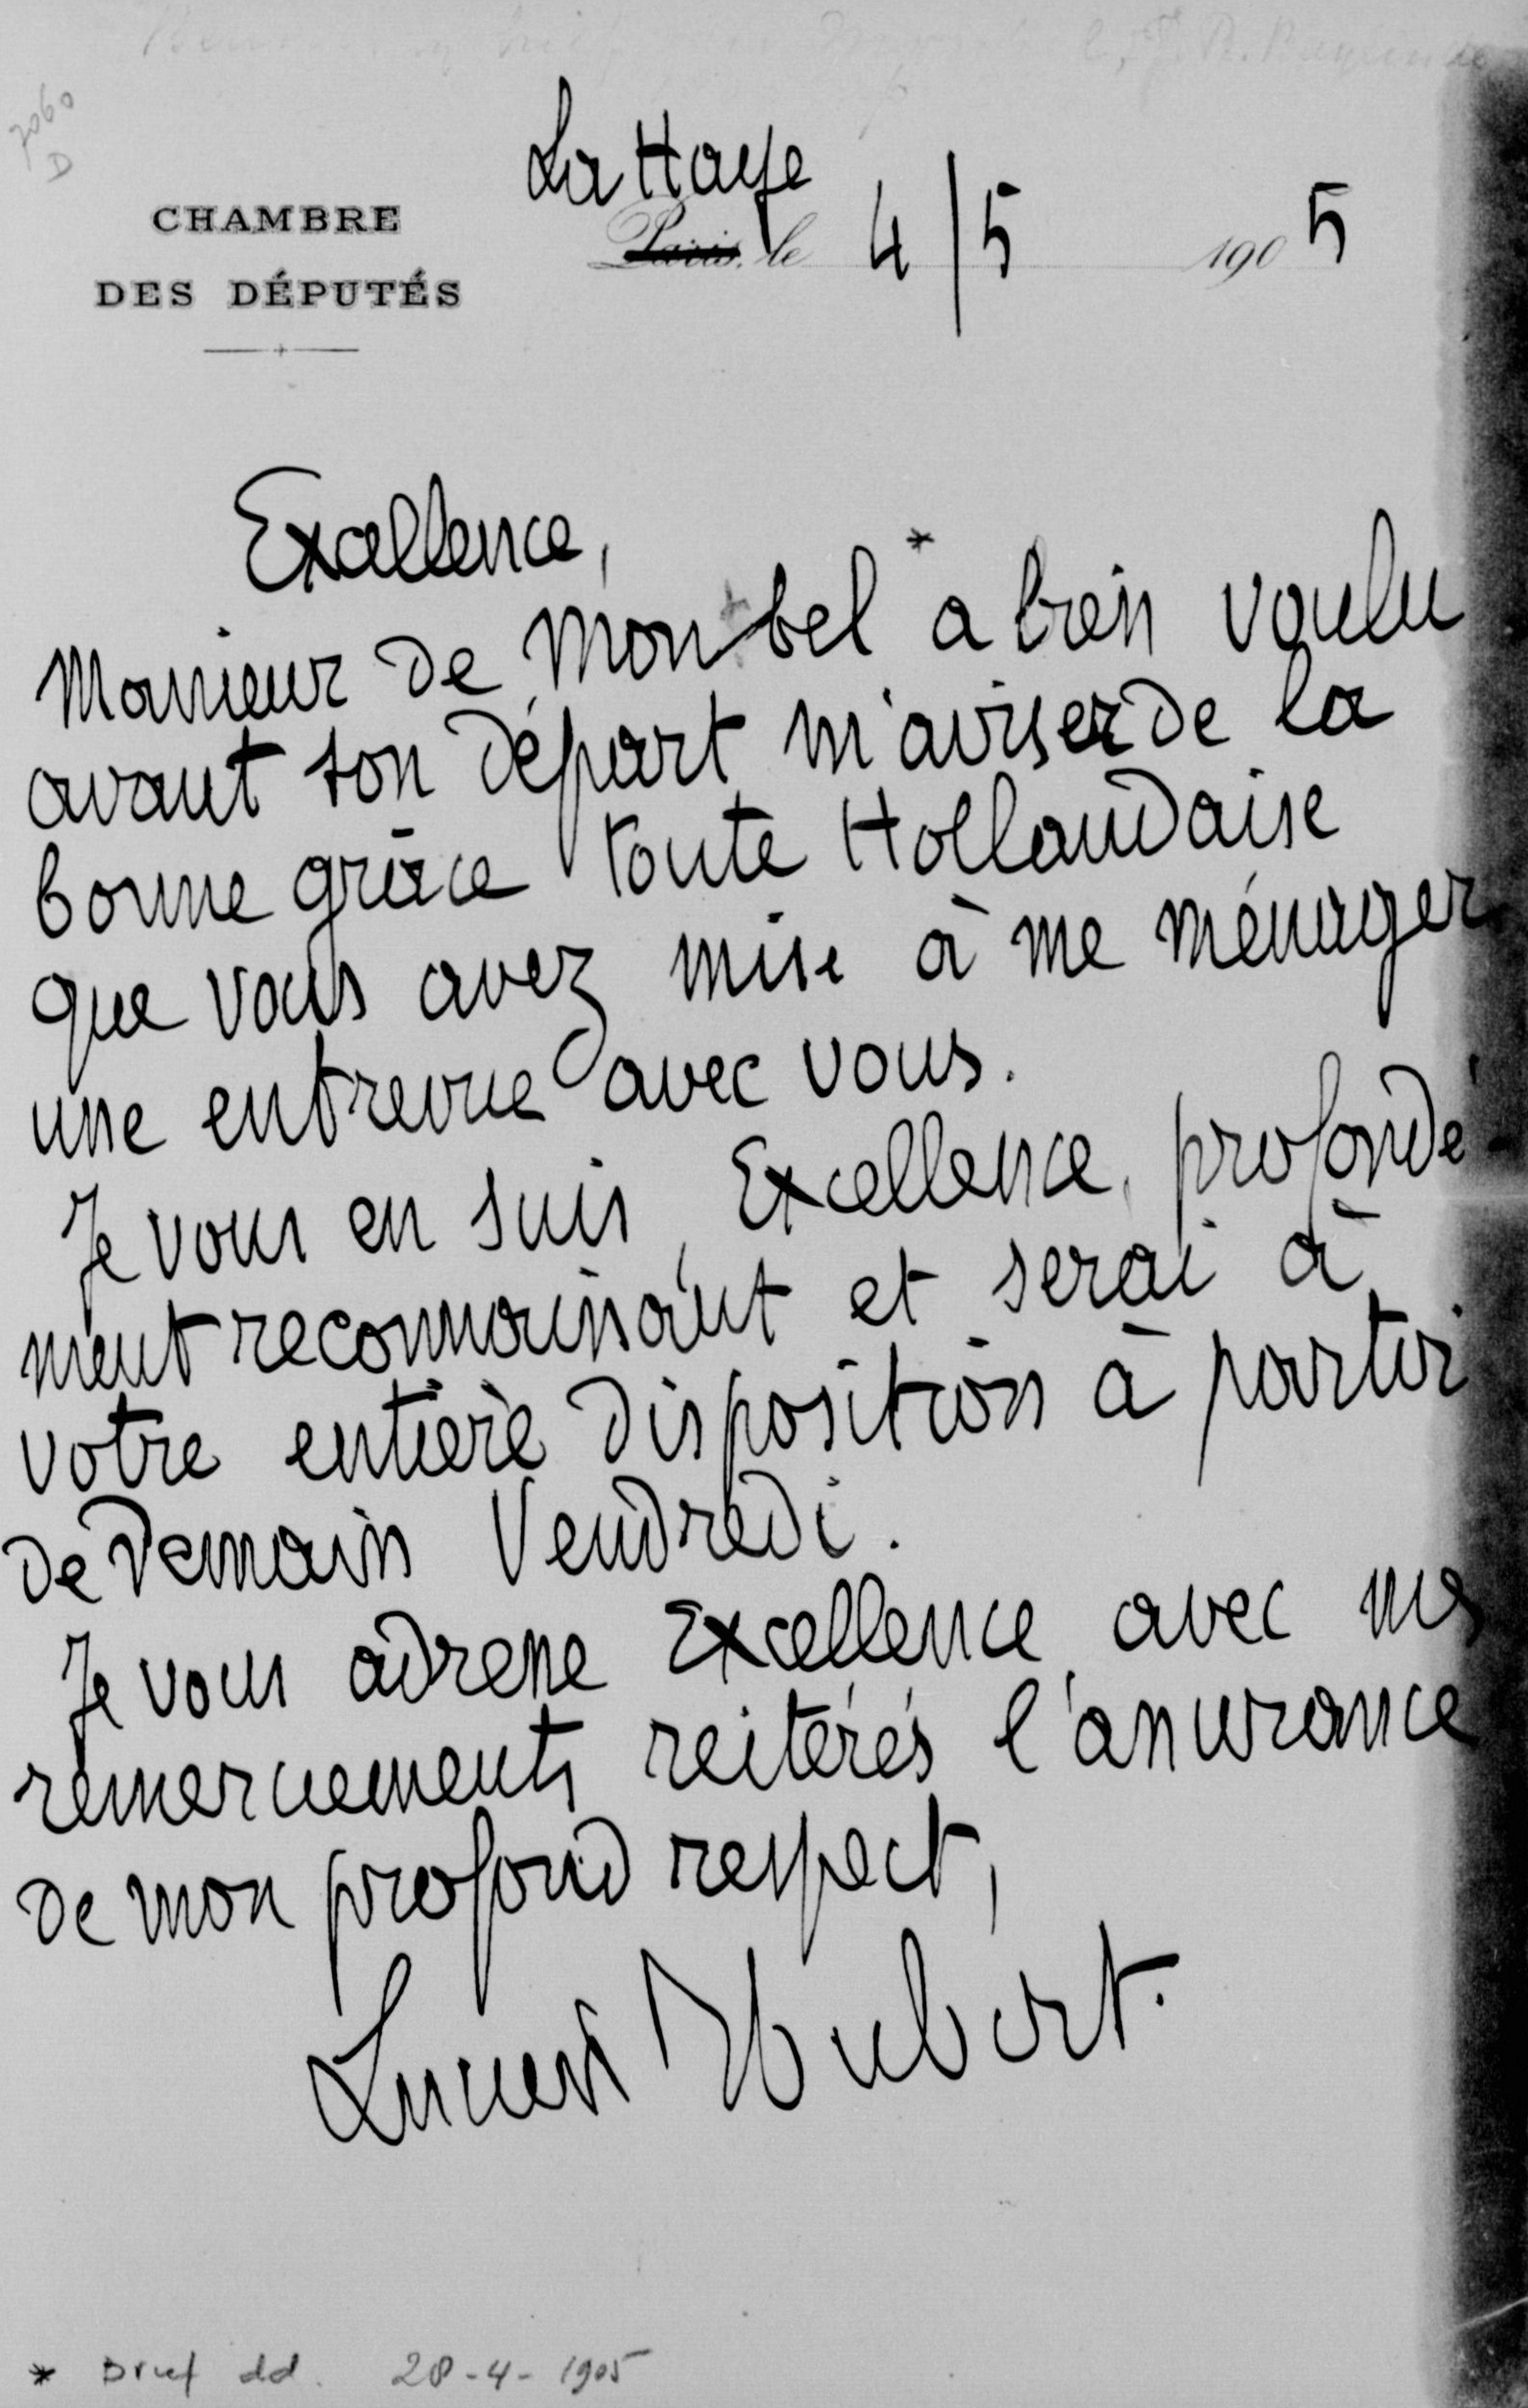 7060
D
CHAMBRE
DES DÉPUTÉS
La Haye
Paris, le 4/5 1905
Excellence,
Monsieur de Monbel * a bien voulu
avant son départ m'aviser de la
bonne grâce toute Hollandaise
que vous avez mise à me ménager
une entrevue avec vous.
Je vous en suis, Excellence, profondé-
ment reconnaissant et serai à
votre entière disposition à partir
de demain Vendredi.
Je vous adresse Excellence, avec mes
remerciements réitérés l'assurance
de mon profond respect,
Lucien Hubert.
* Brief dd. 28-4-1905